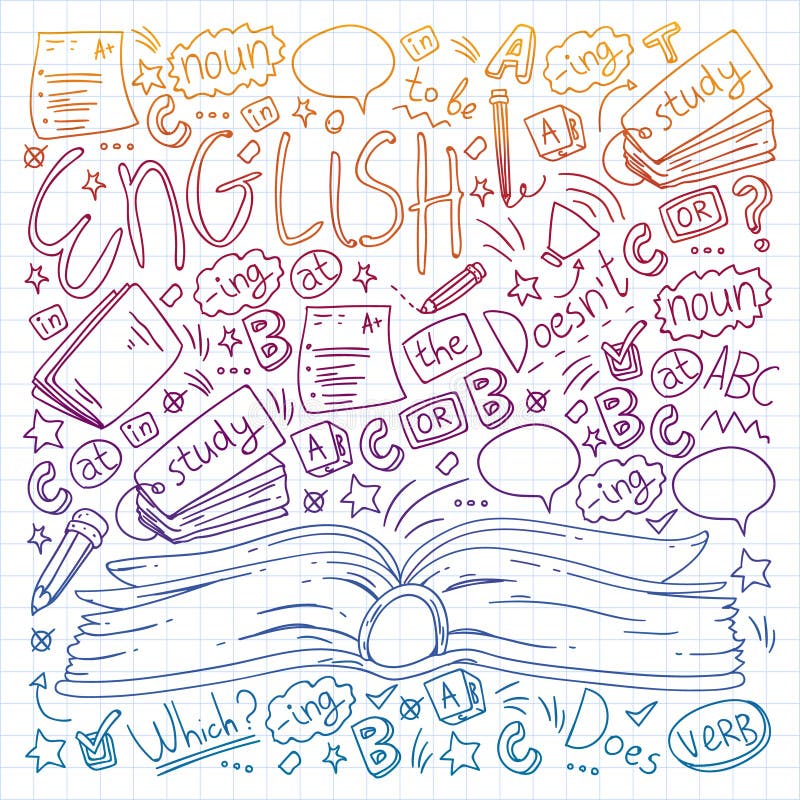 A+
noun
in
A
-ing
T
to be
study
C
in
A B
ENGLISH
OR
?
C
-ing
at
Doesn't
noun
in
B
A+
the
at
ABC
B
B
C
at
in
study
A B
C
OR
C
-ing
Which?
-ing
A B
B
A
Does
VERB